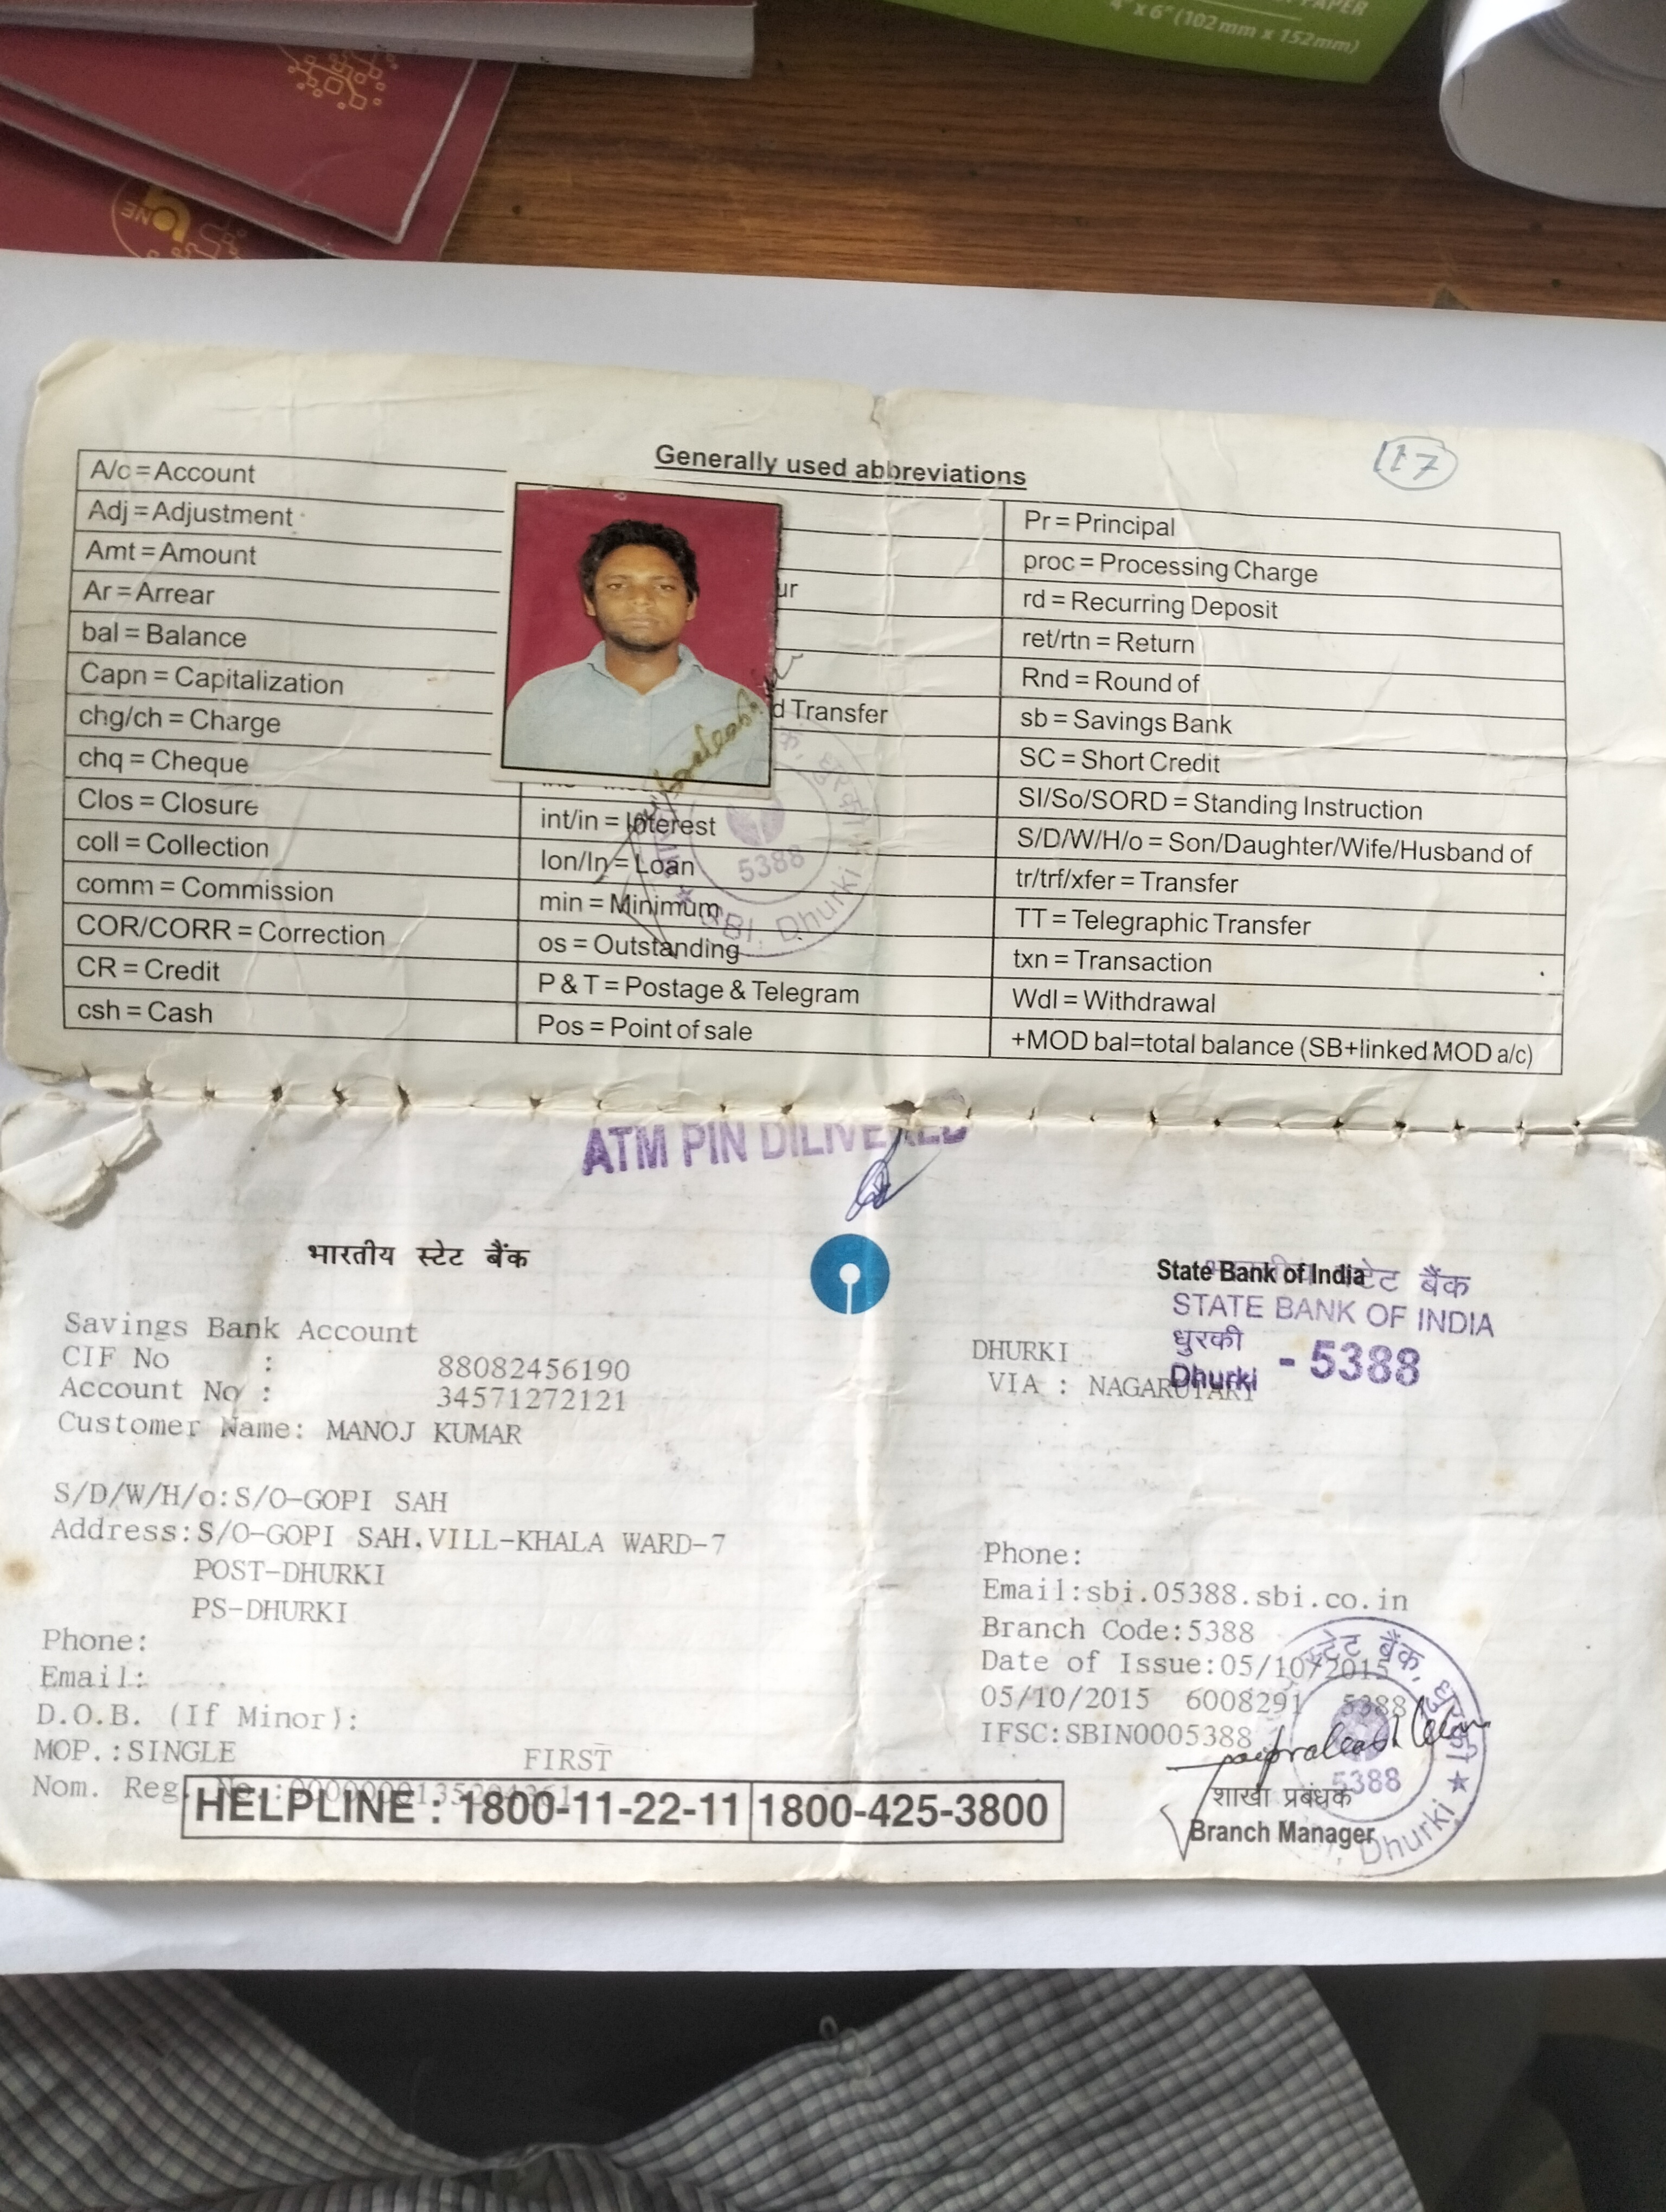 PAPER
4" x 6" (102mm x 152mm)
ONE
117
Generally used abbreviations
A/c = Account
Adj = Adjustment
Amt = Amount
Ar = Arrear
bal = Balance
Capn = Capitalization
chg/ch = Charge
chq = Cheque
Clos = Closure
coll = Collection
comm = Commission
COR/CORR = Correction
CR = Credit
csh = Cash
ur
d Transfer
int/in = Interest
lon/ln = Loan
min = Minimum
os = Outstanding
P & T = Postage & Telegram
Pos = Point of sale
Pr = Principal
proc = Processing Charge
rd = Recurring Deposit
ret/rtn = Return
Rnd = Round of
sb = Savings Bank
SC = Short Credit
SI/So/SORD = Standing Instruction
S/D/W/H/o = Son/Daughter/Wife/Husband of
tr/trf/xfer = Transfer
TT = Telegraphic Transfer
txn = Transaction
Wdl = Withdrawal
+MOD bal=total balance (SB+linked MOD a/c)
5388
SBI, Dhurki
ATM PIN DILIVERED
भारतीय स्टेट बैंक
State Bank of India
स्टेट बैंक
STATE BANK OF INDIA
धुरकी
Dhurki - 5388
Savings Bank Account
CIF No : 88082456190
Account No : 34571272121
Customer Name: MANOJ KUMAR
S/D/W/H/o:S/O-GOPI SAH
Address:S/O-GOPI SAH.VILL-KHALA WARD-7
POST-DHURKI
PS-DHURKI
Phone:
Email:
D.O.B. (If Minor):
MOP.:SINGLE FIRST
Nom. Reg.
DHURKI
VIA : NAGARUTARI
Phone:
Email:sbi.05388.sbi.co.in
Branch Code:5388
Date of Issue:05/10/2015
05/10/2015 6008291 5388
IFSC:SBIN0005388
स्टेट बैंक, धुरकी
5388
Dhurki
शाखा प्रबंधक
Branch Manager
HELPLINE : 1800-11-22-11 1800-425-3800